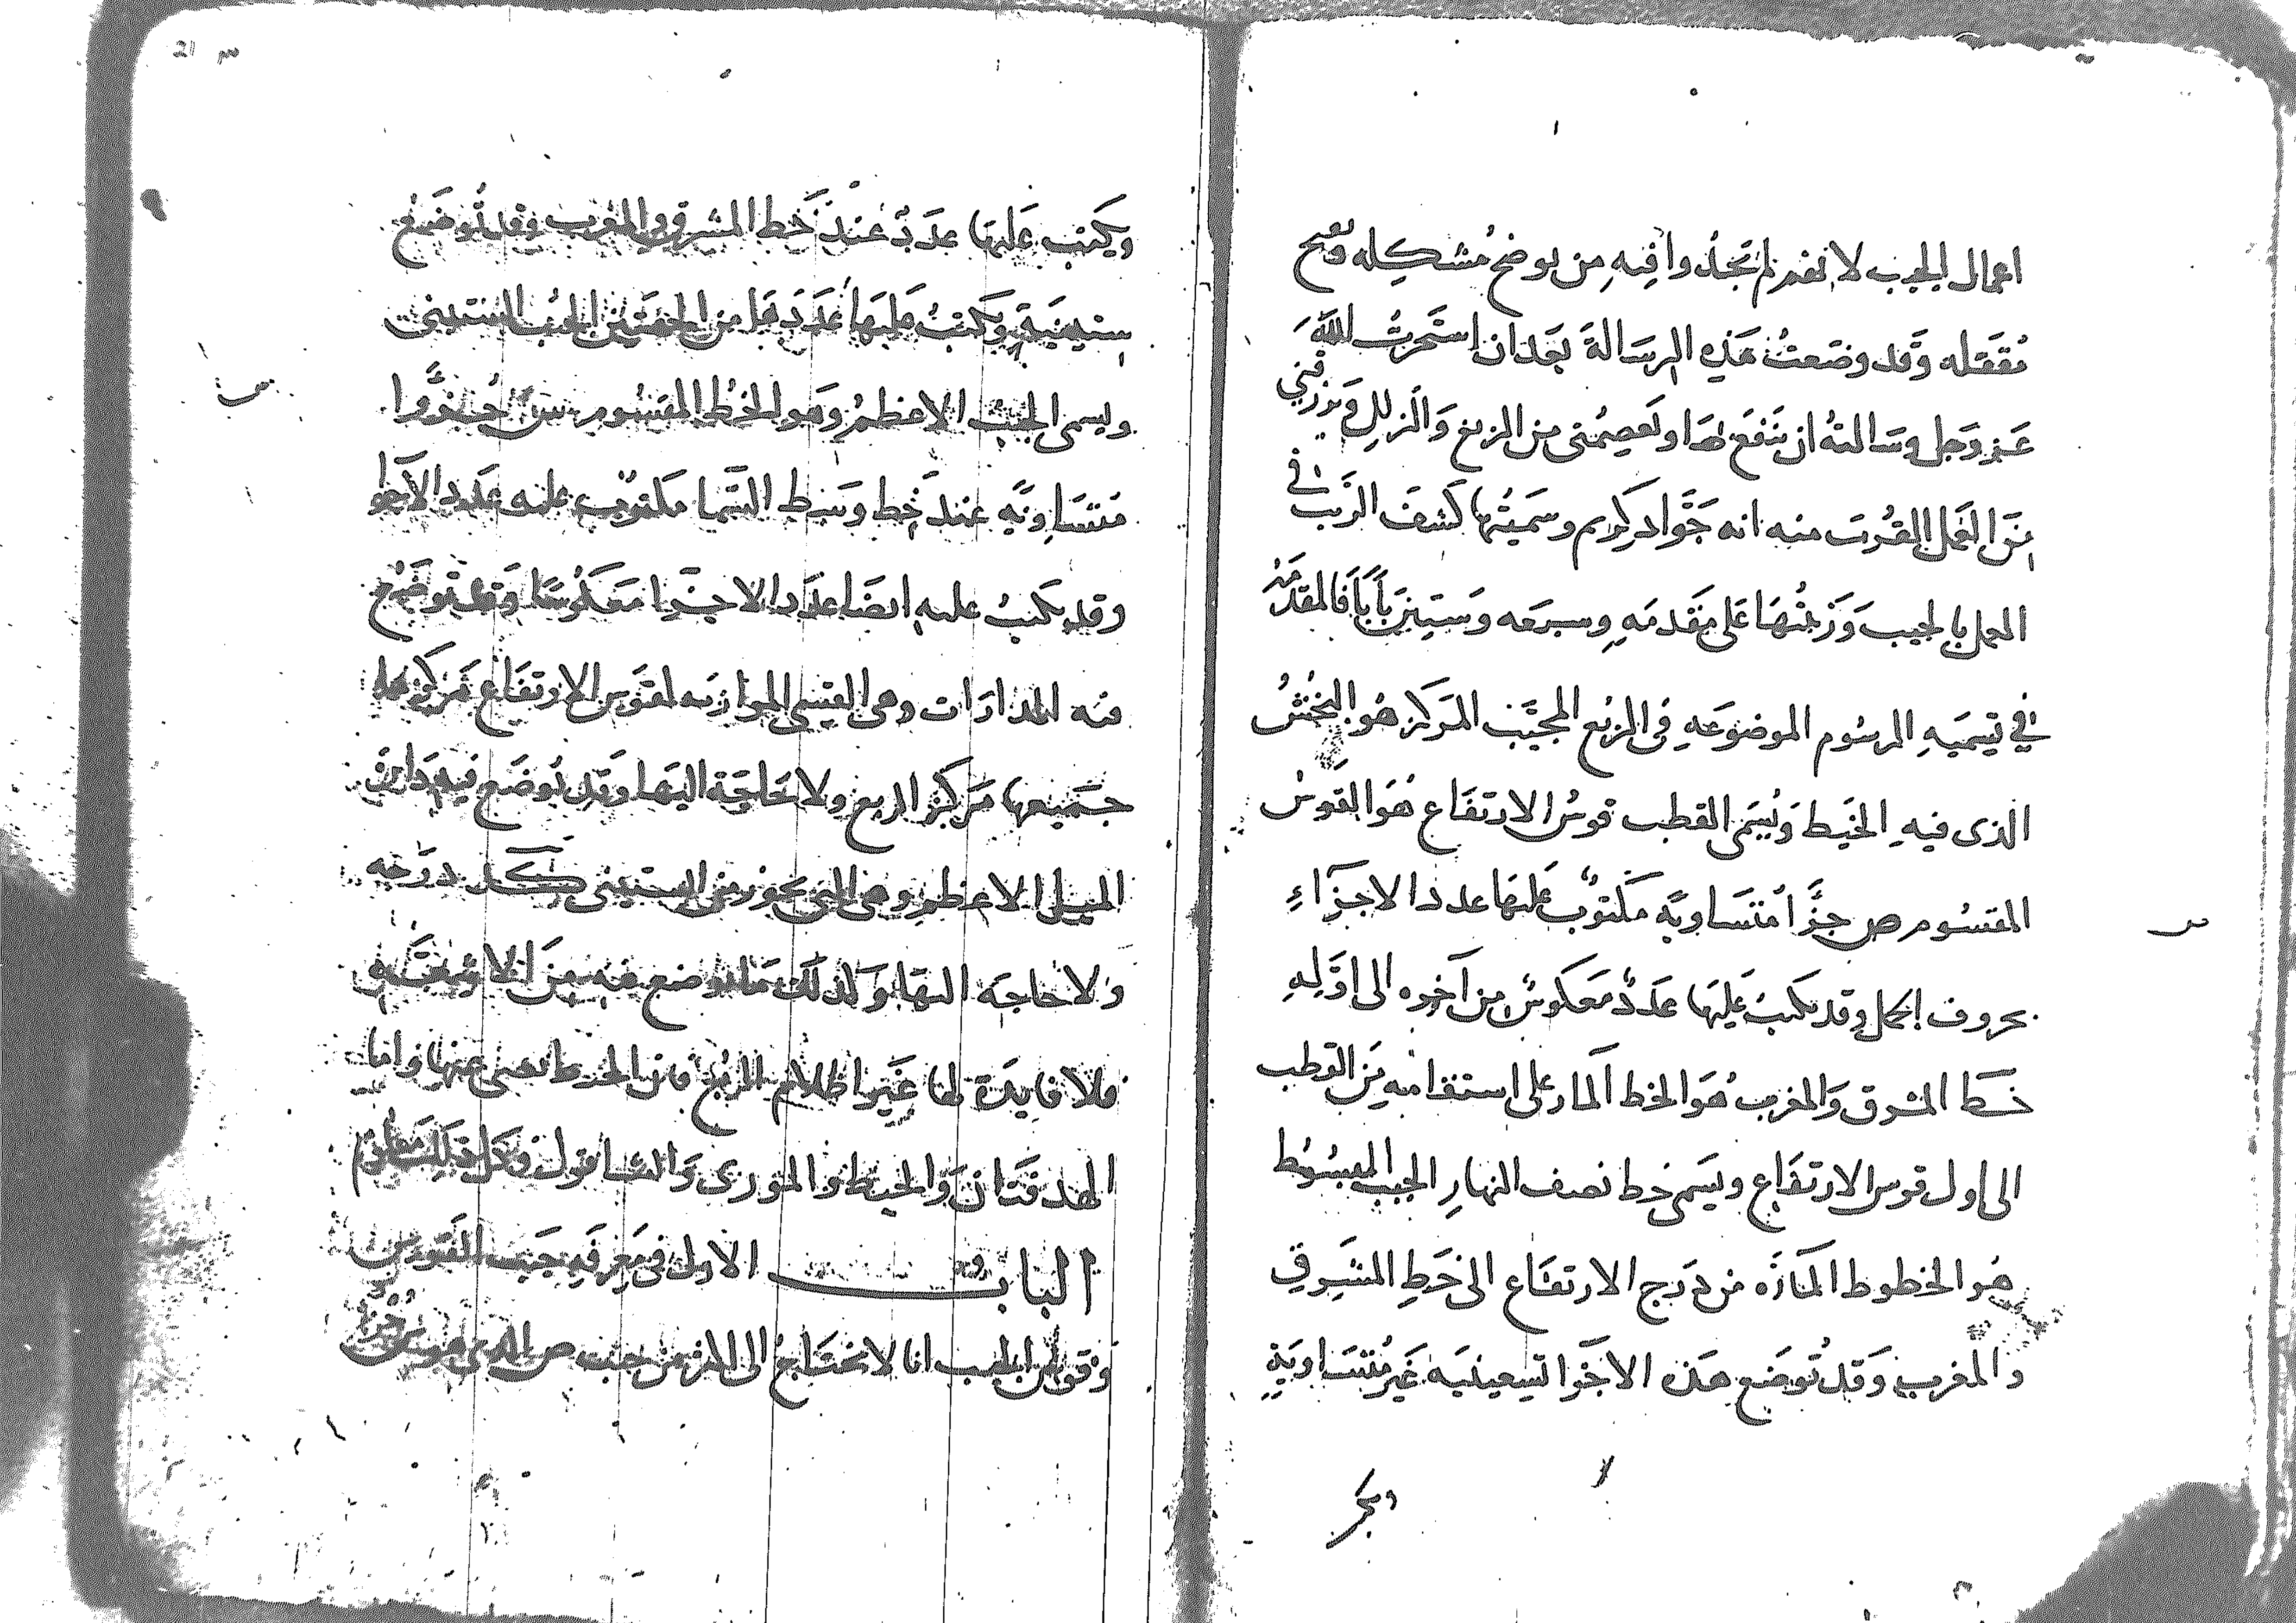 اعمال الجيب لا تفهم لم تجد وافيه من يوضح مشكله ويفتح
مقفله وقد وضعت هذه الرسالة بعد ان استخرت الله
عز وجل وسالته ان ينفع بها ويعصمنى من الزيغ والزلل ويرزقني
من العمل القرب منه انه جواد كريم وسميتها كشف الريب في
العمل بالجيب ورتبتها على مقدمه وسبعه وستين بابا فالمقدمه
في تسميه الرسوم الموضوعه فى الربع المجيب المركز هو البخش
الذى فيه الخيط ويسمى القطب قوس الارتفاع هو القوس
المقسوم ص جزأ متساويه مكتوب عليها عدد الاجزاء
بحروف الجمل وقد يكتب عليها عدد معكوس من آخره الى اوله
خط المشرق والمغرب هو الخط المار على استقامه من القطب
الى اول قوس الارتفاع ويسمى خط نصف النهار الجيب المبسوط
هو الخطوط الماره من درج الارتفاع الى خط المشرق
والمغرب وقد توضع هذه الاجزا تسعينيه غير متساويه
ويكتب
21
ويكتب عليها عدد عند خط المشرق والمغرب وقد توضع
ستينية ويكتب عليها عددها من الجيب الستينى
ويسمى الجيب الاعظم وهو الخط المقسوم س جزوا
متساويه عند خط وسط السما مكتوب عليه عدد الاجزا
وقد يكتب عليه ايضا عدد الاجزا معكوسا وقد توضع
فيه المدارات وهى القسى الموازيه لقوس الارتفاع مركزها
جميعها مركز الربع ولا حاجة اليها وقد توضع فيه دايرة
الميل الاعظم وهى التى تجوز من الستينى درجه
ولا حاجه اليها وكذلك ما يوضع فيه من
فلا فايدة لها غير اظلام الربع وان الخيط واما
الهدفتان والخيط والمورى والشاقول وكل ذلك معلوم
الباب الاول فى معرفه جيب القوس
وقوس الجيب انا لا نحتاج الى اكثر من جيب ص الذى هو س جزءا